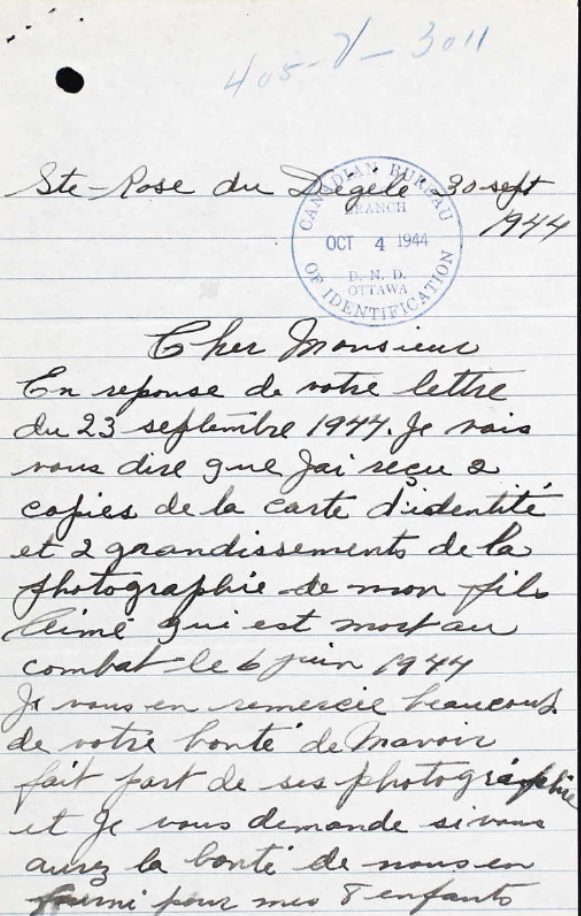 405-V-3011
Ste-Rose du Dégelé 30 sept
1944
CANADIAN BUREAU
BRANCH
OCT 4 1944
D. N. D.
OTTAWA
OF IDENTIFICATION
Cher Monsieur
En reponse de votre lettre
du 23 septembre 1944. Je vais
vous dire que Jai reçu 2
copies de la carte d'identité
et 2 grandissements de la
photographie de mon fils
Aimé qui est mort au
combat le 6 juin 1944
Je vous en remercie beaucoup
de votre bonté de Mavoir
fait part de ses photographie
et Je vous demande si vous
aurez la bonté de nous en
fourni pour mes 8 enfants